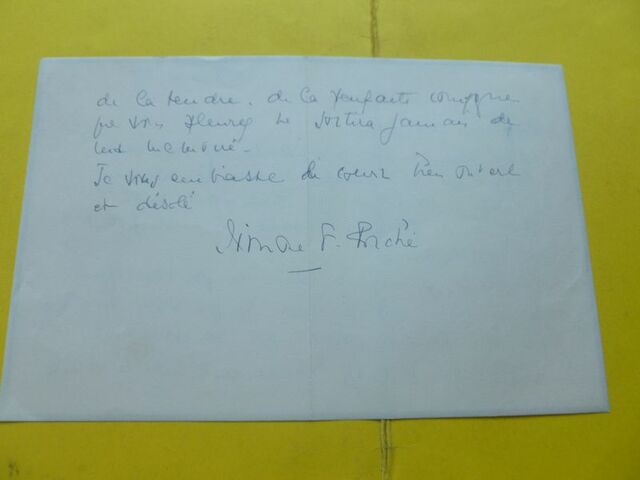 de la tendre. de la parfaite compagne
que vous pleurez ne sortira jamais de
ma mémoire.
Je vous embrasse du coeur bien ouvert
et désolé
Simone F. Porché